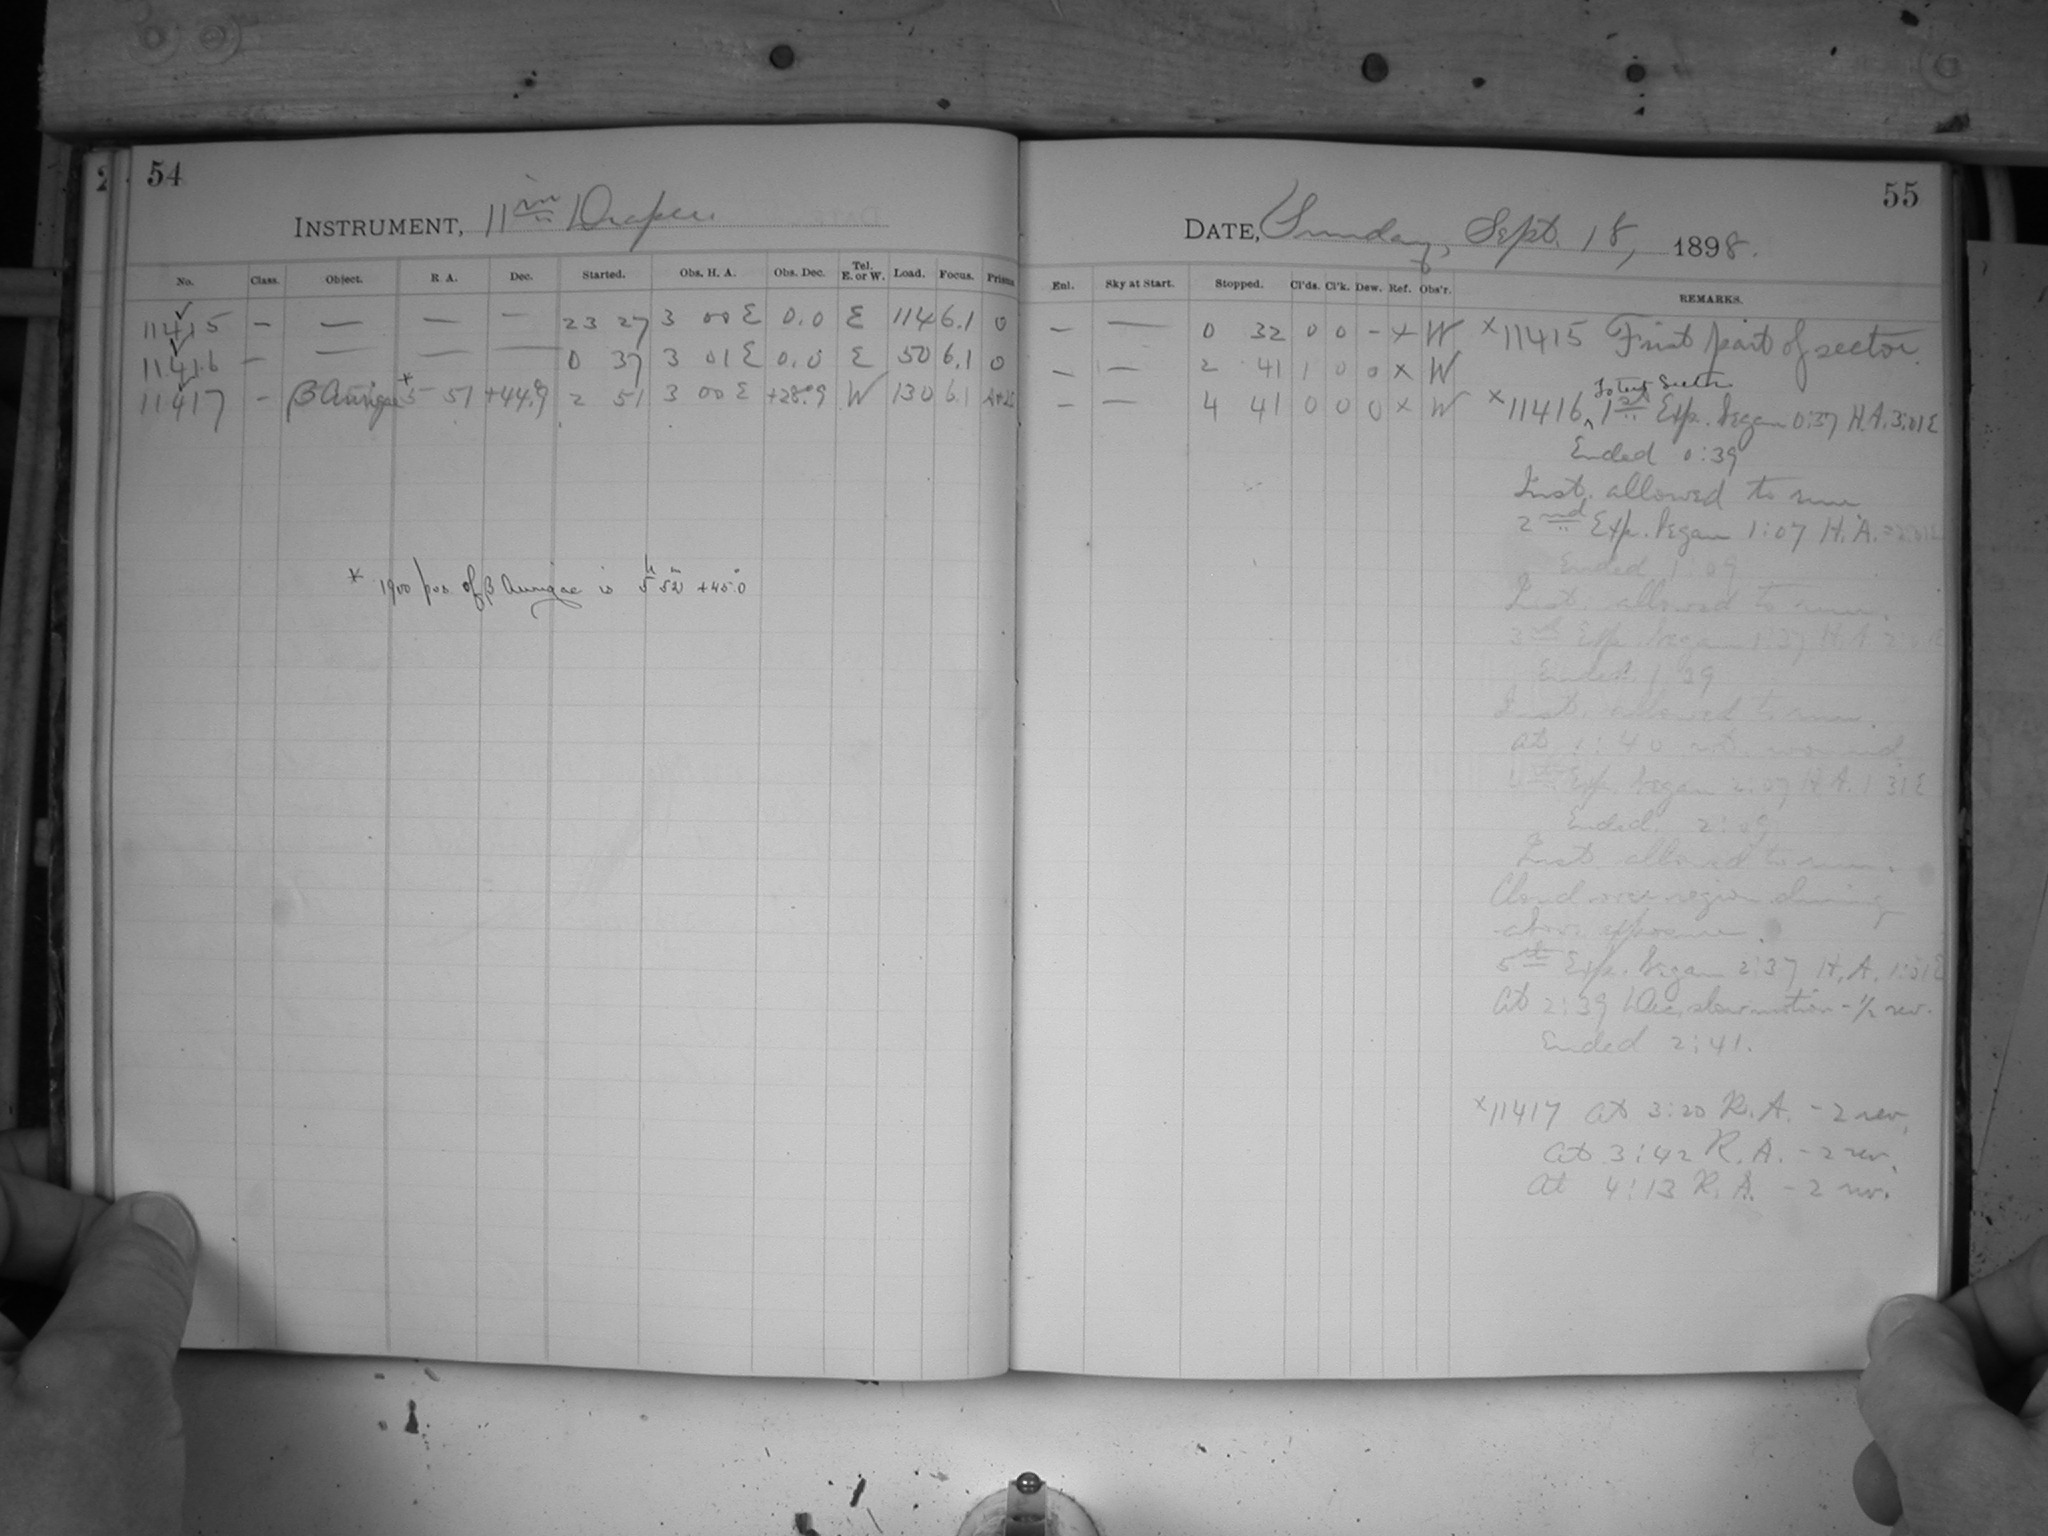 54
INSTRUMENT, 11 in Draper
No. Class. Object. R. A. Dec. Started. Obs. H. A. Obs. Dec. Tel. E. or W. Load. Focus. Prisms
11415 — — — — 23 27 3 00 E 0.0 E 114 6.1 0
11416 — — — — 0 37 3 01 E 0.0 E 50 6.1 0
11417 — β Aurigae *5 51 +44.9 2 51 3 00 E +28.9 W 130 6.1
* 1900 pos of β Aurigae is 5h 52m +45.0
55
DATE, Sunday, Sept. 18, 1898.
Enl. Sky at Start. Stopped. Cl'ds. Cl'k. Dew. Ref. Obs'r. REMARKS.
— — 0 32 0 0 – x W x11415 First part of sector.
— — 2 41 1 0 0 x W
— — 4 41 0 0 0 x W x11416, To test Sector 1st Exp. began 0:37 H.A. 3:01 E
Ended 0:39
Inst. allowed to run
2nd Exp. began 1:07 H.A.
Ended 1:09
Inst. allowed to run.
3rd Exp. began 1:37 H.A.
Ended 1:39
Inst. allowed to run.
At 1:40 wound
4th Exp. began 2:07 H.A. 1 31 E
Ended. 2:09
Inst. allowed to run.
Cloud over region during
above exposure.
5th Exp. began 2:37 H.A. 1:31 E
At 2:39 Dec. slow motion - 1/2 rev.
Ended 2:41.
x11417 At 3:20 R.A. – 2 rev,
At 3:42 R.A. – 2 rev.
At 4:13 R.A. – 2 rev.